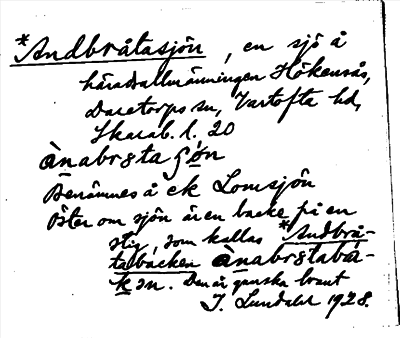 *Andbråtasjön, en sjö å
häradsallmänningen Hökensås,
Daretorps sn, Vartofta hd,
Skarab. l. 20
ànabrstaʃön
Benämnes å ek Lomsjön
Öster om sjön är en backe på en
stig, som kallas *Andbrå-
tabacken ànabrstabá-
kən. Den är ganska brant
J. Lundahl 1928.